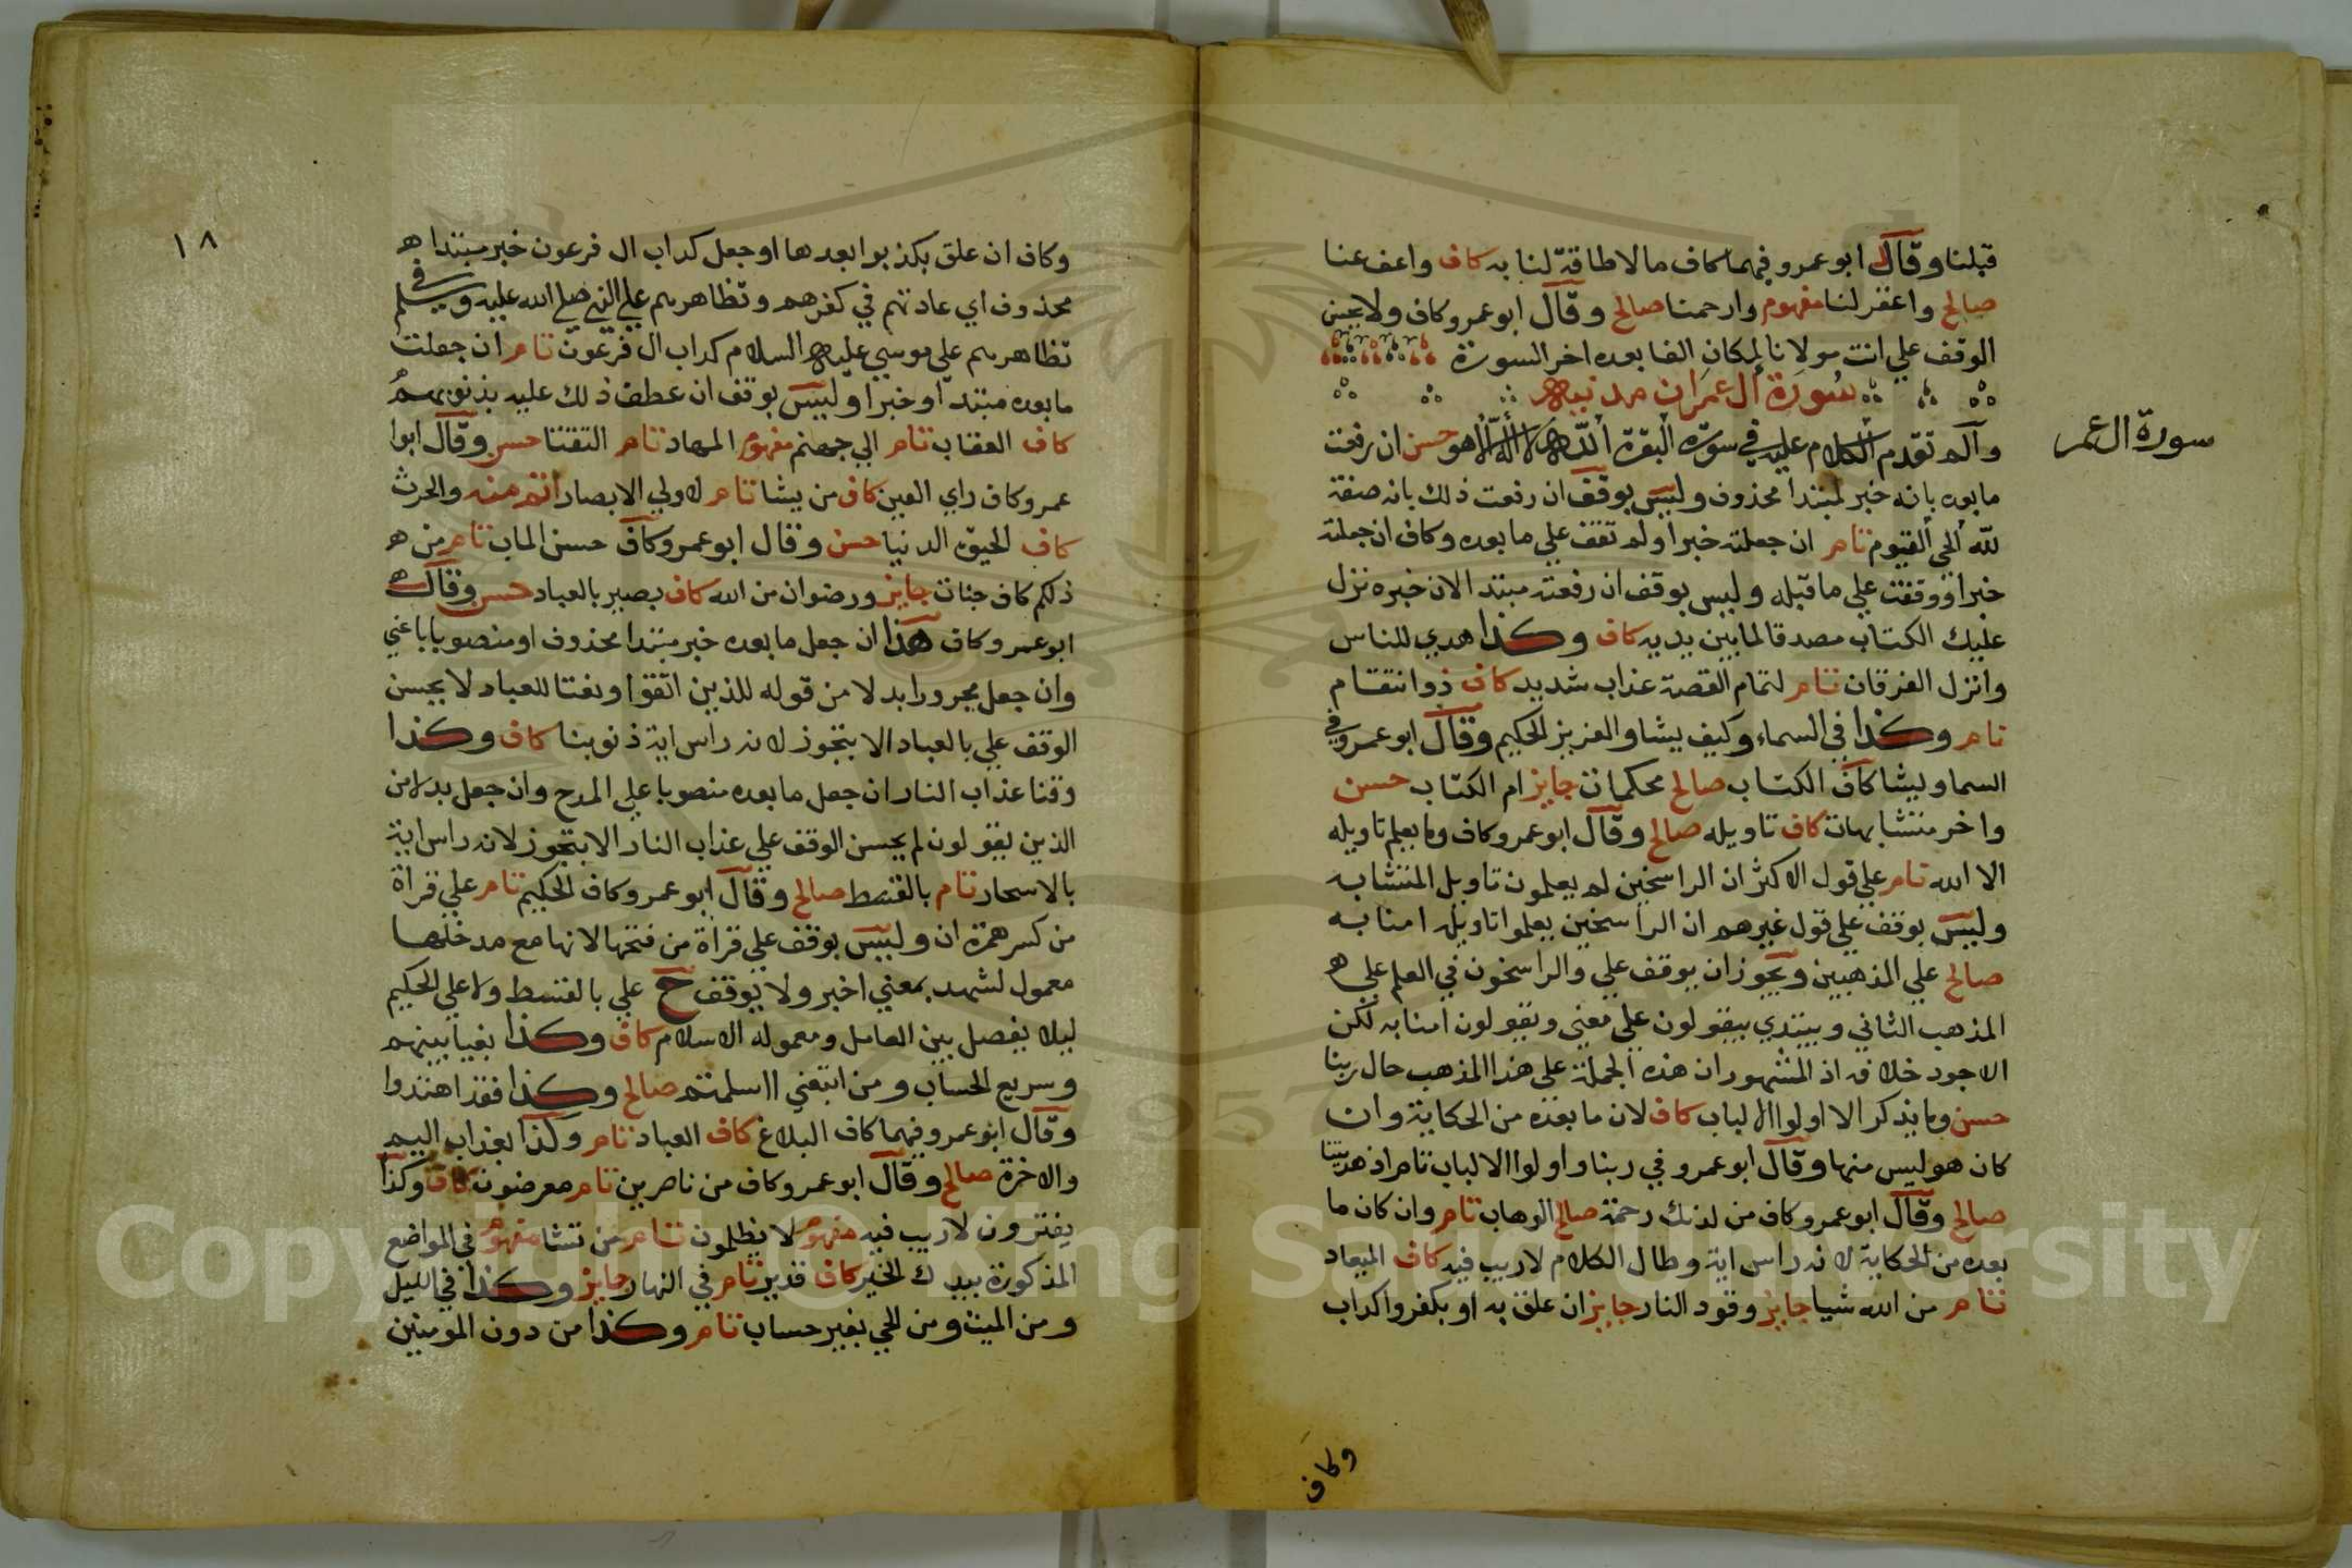 قبلنا وقال ابو عمرو فيهما كاف ما لا طاقة لنا به كاف واعف عنا
صالح واغفر لنا مفهوم وارحمنا صالح وقال ابو عمرو كاف ولا يحسن
الوقف علي انت مولانا لمكان الفا بعده اخر السورة
سورة ال عمران مدنية
سورة ال عمر
والم تقدم الكلام عليه في سورة البقرة الله لا اله الا هو حسن ان رفعت
ما بعده بانه خبر لمبتدا محذوف وليس بوقف ان رفعت ذلك بانه صفة
لله الحي القيوم تام ان جعلته خبرا ولم تقف علي ما بعده وكاف ان جعلته
خبرا ووقفت علي ما قبله وليس بوقف ان رفعته مبتدا لان خبره نزل
عليك الكتاب مصدقا لما بين يديه كاف وكذا هدي للناس
وانزل الفرقان تام لتمام القصة عذاب شديد كاف ذو انتقام
تام وكذا في السماء وكيف يشا والعزيز الحكيم وقال ابو عمرو في
السما ويشا كاف الكتاب صالح محكمات جايز ام الكتاب حسن
واخر متشابهات كاف تاويله صالح وقال ابو عمرو كاف وما يعلم تاويله
الا الله تام علي قول الاكثر ان الراسخين لم يعلمون تاويل المتشابه
وليس بوقف علي قول غيرهم ان الراسخين يعلموا تاويله امنا به
صالح علي المذهبين ويجوز ان يوقف علي والراسخون في العلم علي
المذهب الثاني ويبتدي بيقولون علي معني ويقولون امنا به لكن
الاجود خلافه اذ المشهور ان هذه الجملة علي هذا المذهب حال ربنا
حسن وما يذكر الا اولوا الالباب كاف لان ما بعده من الحكاية وان
كان هو ليس منها وقال ابو عمرو في ربنا واولوا الالباب تام اذ هديتنا
صالح وقال ابو عمرو كاف من لدنك رحمة صالح الوهاب تام وان كان ما
بعده من الحكاية لانه راس اية وطال الكلام لا ريب فيه كاف الميعاد
تام من الله شيا جايز وقود النار جايز ان علق به او بكفروا كداب
وكاف
١٨
وكاف ان علق بكذبوا بعدها او جعل كداب ال فرعون خبر مبتدا
محذوف اي عادتهم في كفرهم وتظاهرهم علي النبي صلي الله عليه وسلم في
تظاهرهم علي موسي عليه السلام كداب ال فرعون تام ان جعلت
ما بعده مبتدا وخبرا وليس بوقف ان عطف ذلك عليه بذنوبهم
كاف العقاب تام الي جهنم مفهوم المهاد تام التقتا حسن وقال ابوا
عمرو كاف راي العين كاف من يشا تام لاولي الابصار اتم منه والحرث
كاف الحيوة الدنيا حسن وقال ابو عمرو كاف حسن الماب تام من
ذلكم كاف جنات جايز ورضوان من الله كاف بصير بالعباد حسن وقال
ابو عمرو كاف هذا ان جعل ما بعده خبر مبتدا محذوف او منصوبا باعني
وان جعل مجرورا بدلا من قوله للذين اتقوا او نعتا للعباد لا يحسن
الوقف علي بالعباد الا بتجوز لانه راس اية ذنوبنا كاف وكذا
وقنا عذاب النار ان جعل ما بعده منصوبا علي المدح وان جعل بدلا من
الذين يقولون لم يحسن الوقف علي عذاب النار الا بتجوز لانه راس اية
بالاسحار تام بالقسط صالح وقال ابو عمرو كاف الحكيم تام علي قراة
من كسر همزة ان وليس بوقف علي قراة من فتحها لانها مع مدخلها
معمول لشهد بمعني اخبر ولا يوقف ح علي بالقسط ولا علي الحكيم
ليلا يفصل بين العامل ومعموله الاسلام كاف وكذا بغيا بينهم
وسريع الحساب ومن اتبعني ااسلمتم صالح وكذا فقد اهتدوا
وقال ابو عمرو فيهما كاف البلاغ كاف العباد تام وكذا بعذاب اليم
والاخرة صالح وقال ابو عمرو كاف من ناصرين تام معرضون كاف وكذا
يفترون لا ريب فيه مفهوم لا يظلمون تام من تشا مفهوم في المواضع
المذكورة بيدك الخير كاف قدير تام في النهار جايز وكذا في الليل
ومن الميت ومن الحي بغير حساب تام وكذا من دون المومنين
Copyright © King Saud University
1957